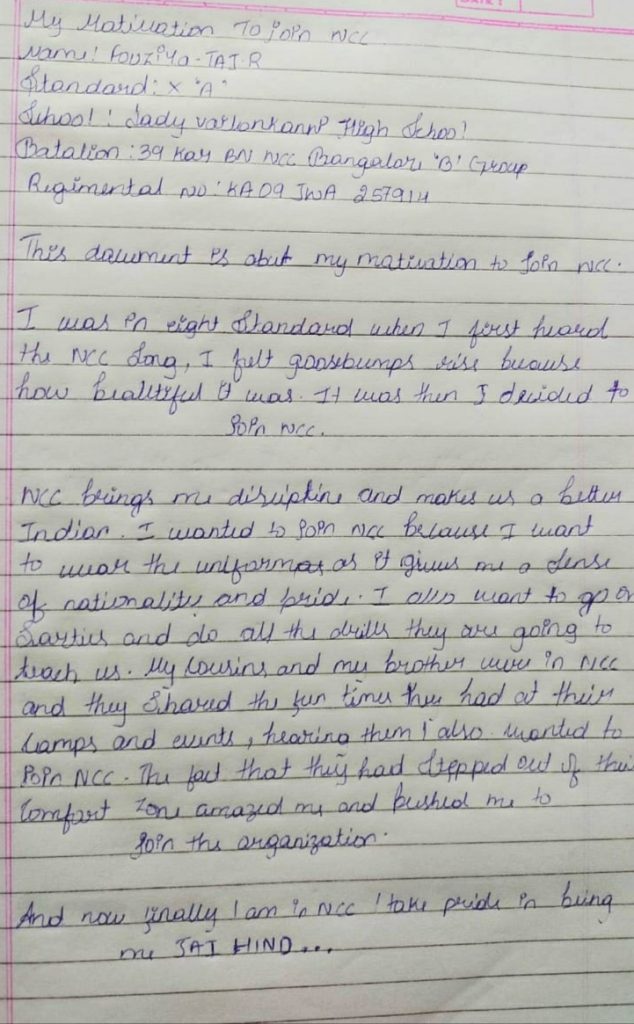 My Motivation To join NCC
Name: Fouziya-TAJ.R
Standard: X "A"
School: Lady vailankanni High School
Batalion: 39 Kar BN NCC Bangalore 'B' Group
Regimental NO: KA09 JWA 257914
This daument is abut my motivation to join NCC.
I was in eight Standard when I first heard
the NCC Song, I felt goosebumps rise because
how beautiful it was. It was then I decided to
join NCC.
NCC brings me discipline and makes us a better
Indian. I wanted to join NCC because I want
to wear the uniform as it gives me a sense
of nationality and pride. I also want to go on
and do all the drills they are going to
teach us. My Cousins and my brother were in NCC
and they shared the fun times they had at their
camps and events, hearing them I also wanted to
join NCC. The fact that they had stepped out of their
comfort zone amazed me and pushed me to
join the organization.
And now finally I am in NCC I take pride in being
me JAI HIND...